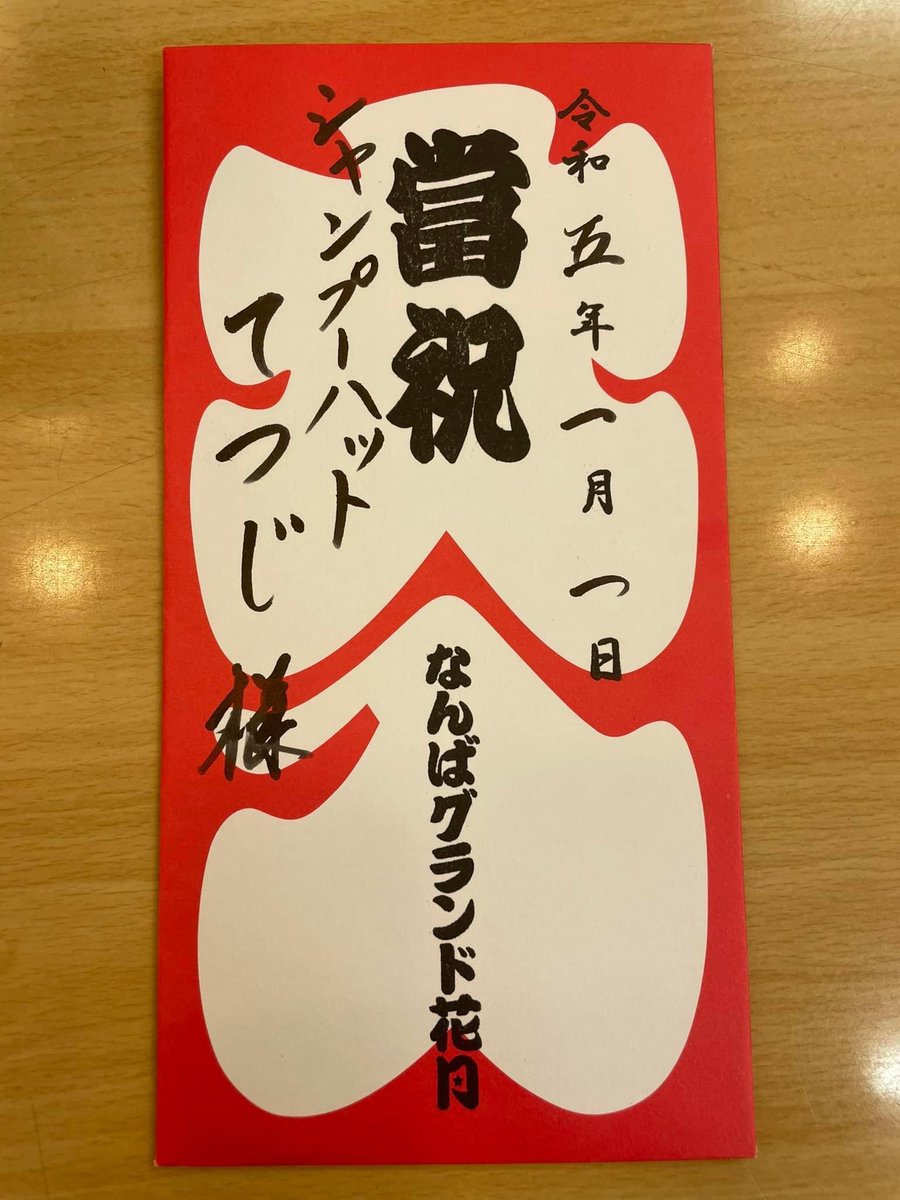 令和五年一月一日
當祝
なんばグランド花月
シャンプーハット
てつじ様